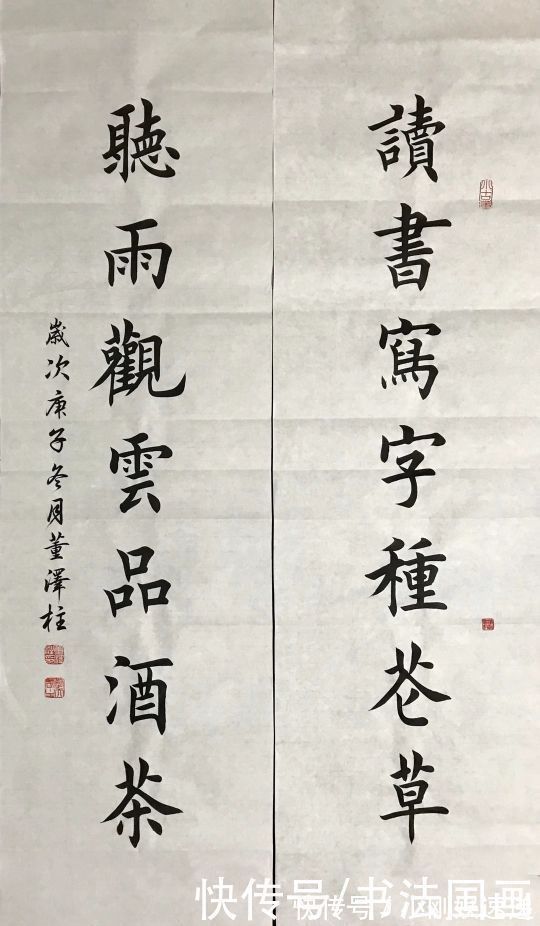 讀書寫字種花草
聽雨觀雲品酒茶
歲次庚子冬月董澤柱
快传号/书法国画
快传号/